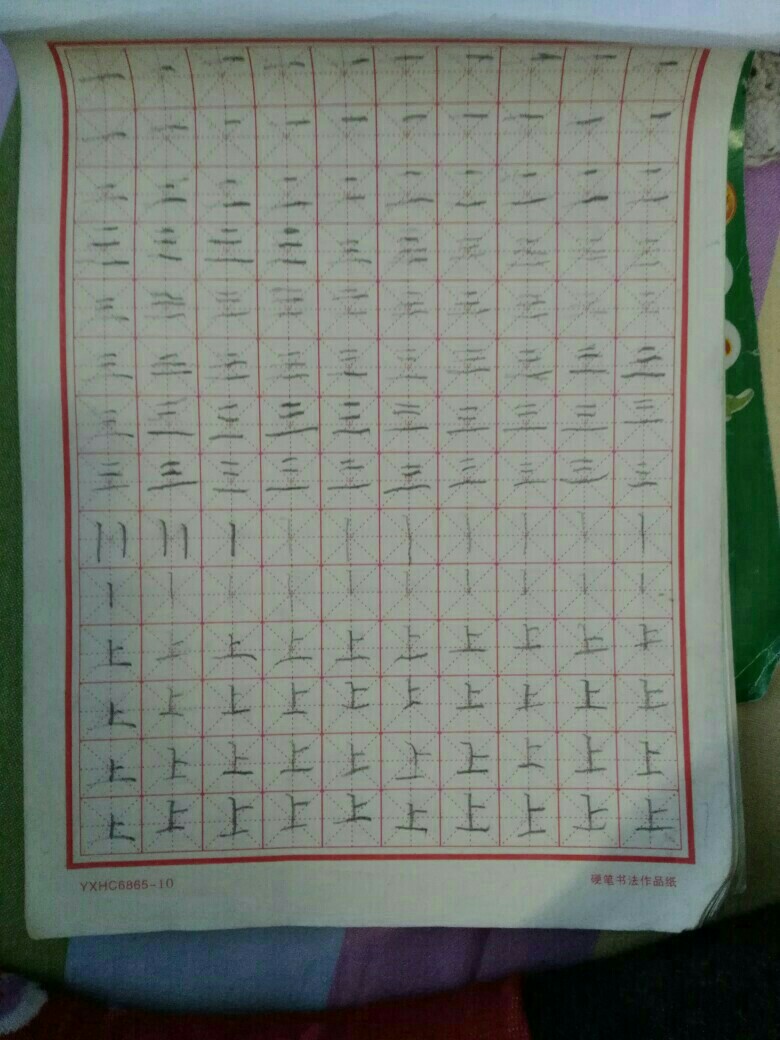 一一一一一一一一一一
一一一一一一一一一一
二二二二二二二二二二
三三三三三三三三三三
三三三三三三三三三三
三三三三三三三三三三
三三三三三三三三三三
三三三三三三三三三三
丨丨丨丨丨丨丨丨丨丨丨丨
丨丨丨丨丨丨丨丨丨丨
上上上上上上上上上上
上上上上上上上上上上
上上上上上上上上上上
上上上上上上上上上上
YXHC6865-10 硬笔书法作品纸